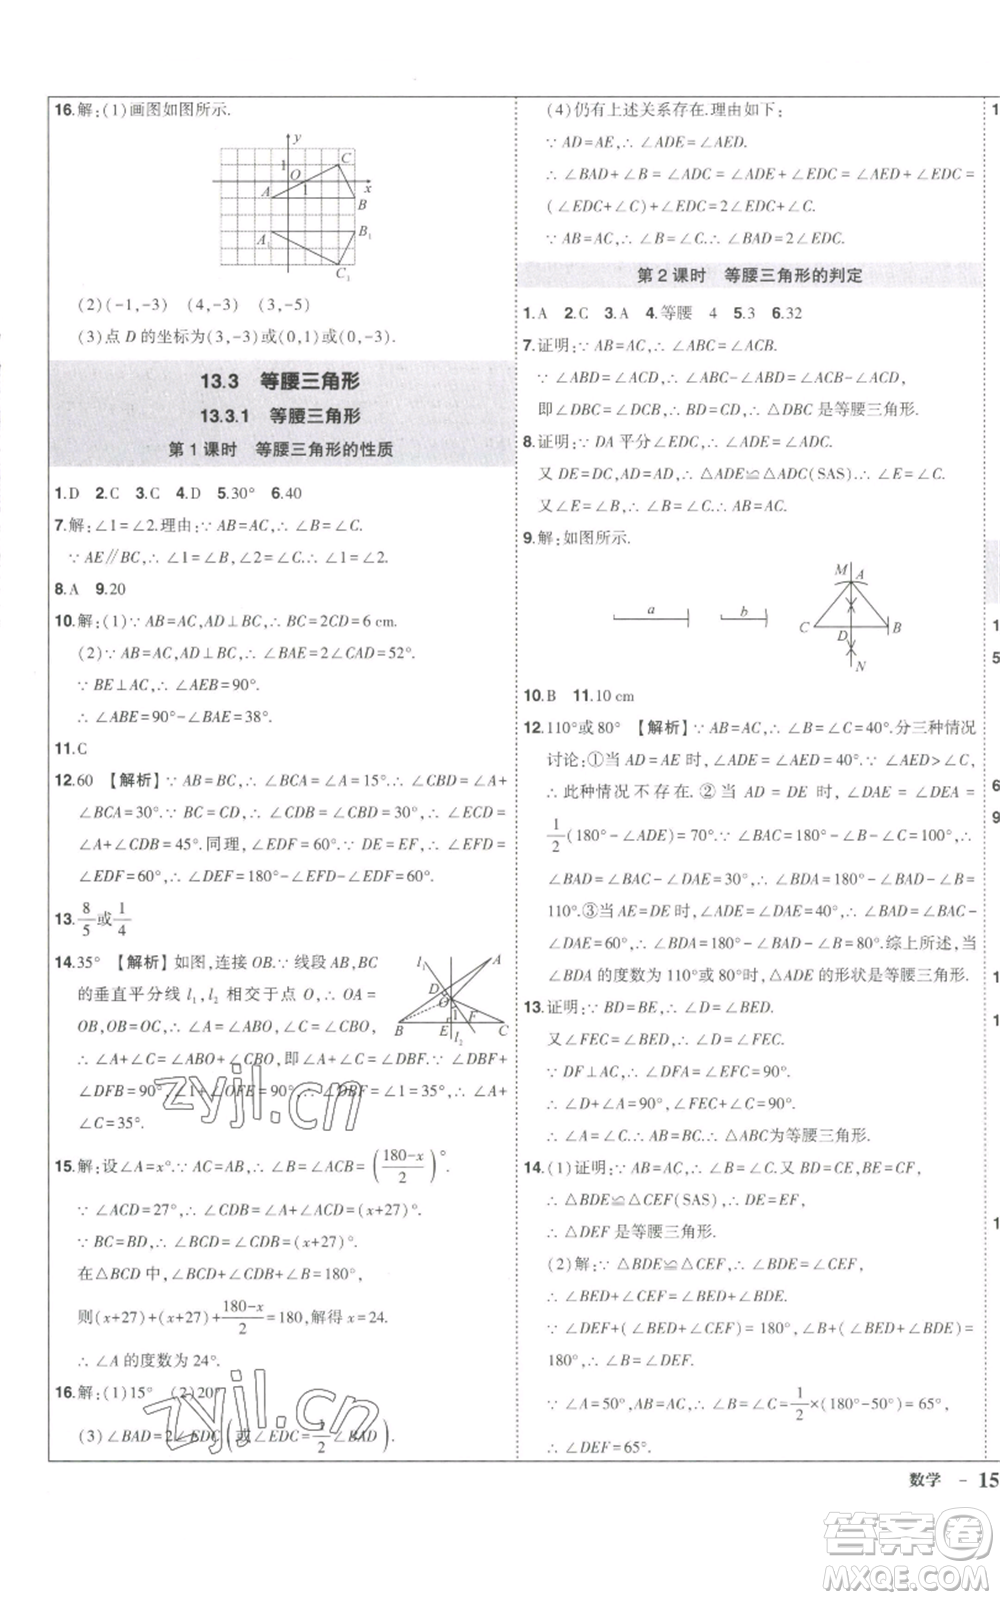 16.解:(1)画图如图所示.
y
1
O
C
A
1
x
B
A₁
B₁
C₁
(2)(-1,-3)　(4,-3)　(3,-5)
(3)点 D 的坐标为(3,-3)或(0,1)或(0,-3).
13.3　等腰三角形
13.3.1　等腰三角形
第 1 课时　等腰三角形的性质
1.D　2.C　3.C　4.D　5.30°　6.40
7.解:∠1=∠2.理由:∵ AB=AC,∴ ∠B=∠C.
∵ AE∥BC,∴ ∠1=∠B,∠2=∠C,∴ ∠1=∠2.
8.A　9.20
10.解:(1)∵ AB=AC,AD⊥BC,∴ BC=2CD=6 cm.
(2)∵ AB=AC,AD⊥BC,∴ ∠BAE=2∠CAD=52°.
∵ BE⊥AC,∴ ∠AEB=90°.
∴ ∠ABE=90°-∠BAE=38°.
11.C
12.60　【解析】∵ AB=BC,∴ ∠BCA=∠A=15°.∴ ∠CBD=∠A+
∠BCA=30°.∵ BC=CD,∴ ∠CDB=∠CBD=30°.∴ ∠ECD=
∠A+∠CDB=45°.同理,∠EDF=60°.∵ DE=EF,∴ ∠EFD=
∠EDF=60°,∴ ∠DEF=180°-∠EFD-∠EDF=60°.
13. 8/5 或 1/4
14.35°　【解析】如图,连接 OB.∵ 线段 AB,BC
的垂直平分线 l₁,l₂ 相交于点 O,∴ OA=
OB,OB=OC,∴ ∠A=∠ABO,∠C=∠CBO,
l₁
A
D
O
1
F
B
E
l₂
C
∴ ∠A+∠C=∠ABO+∠CBO,即∠A+∠C=∠DBF.∵ ∠DBF+
∠DFB=90°,∠1+∠OFE=90°,∴ ∠DBF=∠1=35°,∴ ∠A+
∠C=35°.
15.解:设∠A=x°.∵ AC=AB,∴ ∠B=∠ACB=((180-x)/2)°.
∵ ∠ACD=27°,∴ ∠CDB=∠A+∠ACD=(x+27)°.
∵ BC=BD,∴ ∠BCD=∠CDB=(x+27)°.
在△BCD 中,∠BCD+∠CDB+∠B=180°,
则(x+27)+(x+27)+(180-x)/2=180,解得 x=24.
∴ ∠A 的度数为 24°.
16.解:(1)15°　(2)20°
(3)∠BAD=2∠EDC(或∠EDC=1/2∠BAD).
(4)仍有上述关系存在.理由如下:
∵ AD=AE,∴ ∠ADE=∠AED.
∴ ∠BAD+∠B=∠ADC=∠ADE+∠EDC=∠AED+∠EDC=
(∠EDC+∠C)+∠EDC=2∠EDC+∠C.
∵ AB=AC,∴ ∠B=∠C,∴ ∠BAD=2∠EDC.
第 2 课时　等腰三角形的判定
1.A　2.C　3.A　4.等腰　4　5.3　6.32
7.证明:∵ AB=AC,∴ ∠ABC=∠ACB.
∵ ∠ABD=∠ACD,∴ ∠ABC-∠ABD=∠ACB-∠ACD,
即∠DBC=∠DCB,∴ BD=CD,∴ △DBC 是等腰三角形.
8.证明:∵ DA 平分∠EDC,∴ ∠ADE=∠ADC.
又 DE=DC,AD=AD,∴ △ADE≌△ADC(SAS),∴ ∠E=∠C.
又∠E=∠B,∴ ∠B=∠C,∴ AB=AC.
9.解:如图所示.
a
b
M
A
C
D
B
N
10.B　11.10 cm
12.110°或 80°　【解析】∵ AB=AC,∴ ∠B=∠C=40°.分三种情况
讨论:①当 AD=AE 时,∠ADE=∠AED=40°.∵ ∠AED>∠C,
∴ 此种情况不存在.②当 AD=DE 时,∠DAE=∠DEA=
1/2(180°-∠ADE)=70°.∵ ∠BAC=180°-∠B-∠C=100°,∴
∠BAD=∠BAC-∠DAE=30°,∴ ∠BDA=180°-∠BAD-∠B=
110°.③当 AE=DE 时,∠DAE=∠ADE=40°,∴ ∠BAD=∠BAC-
∠DAE=60°,∴ ∠BDA=180°-∠BAD-∠B=80°.综上所述,当
∠BDA 的度数为 110°或 80°时,△ADE 的形状是等腰三角形.
13.证明:∵ BD=BE,∴ ∠D=∠BED.
又∠FEC=∠BED,∴ ∠D=∠FEC.
∵ DF⊥AC,∴ ∠DFA=∠EFC=90°.
∴ ∠D+∠A=90°,∠FEC+∠C=90°.
∴ ∠A=∠C,∴ AB=BC,∴ △ABC 为等腰三角形.
14.(1)证明:∵ AB=AC,∴ ∠B=∠C.又 BD=CE,BE=CF,
∴ △BDE≌△CEF(SAS),∴ DE=EF,
∴ △DEF 是等腰三角形.
(2)解:∵ △BDE≌△CEF,∴ ∠BDE=∠CEF,
∴ ∠BED+∠CEF=∠BED+∠BDE.
∵ ∠DEF+(∠BED+∠CEF)=180°,∠B+(∠BED+∠BDE)=
180°,∴ ∠B=∠DEF.
∵ ∠A=50°,AB=AC,∴ ∠B=1/2×(180°-50°)=65°,
∴ ∠DEF=65°.
1
1
5
6
9
1
1
1
数学　-　15
zyjl.cn
zyjl.cn
答案圈
MXQE.COM